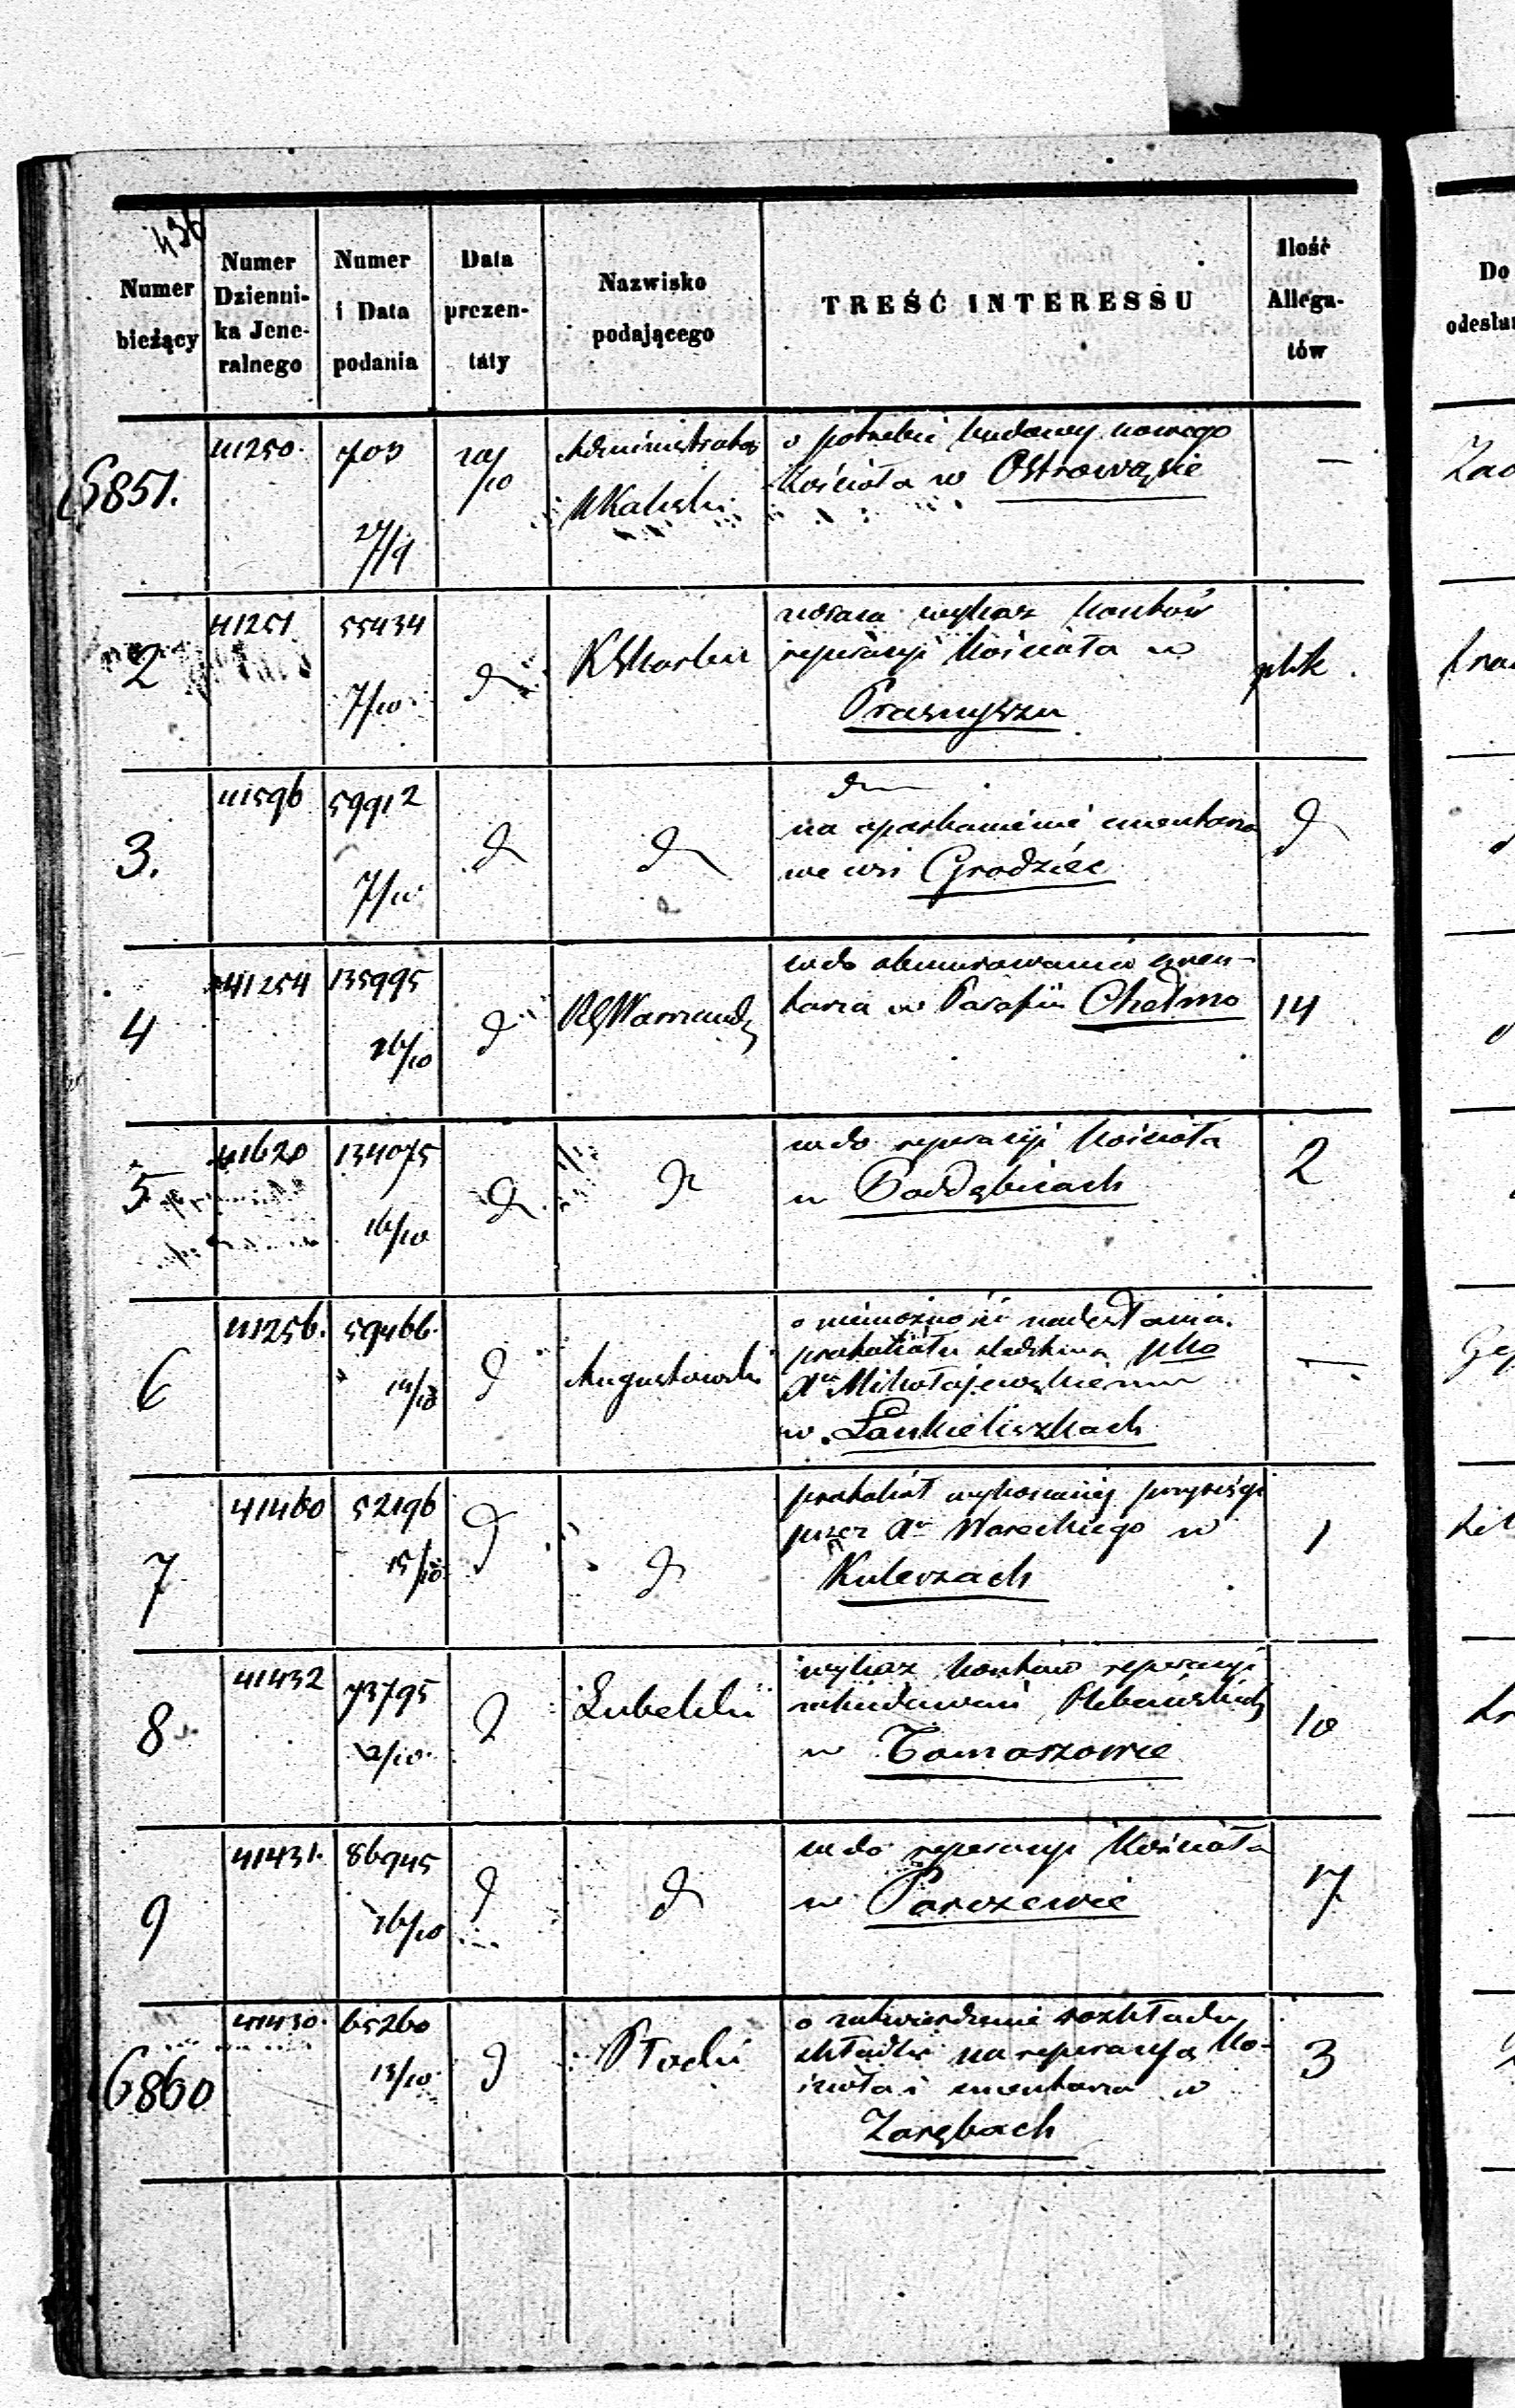 436
Numer bieżący
Numer Dzienni- ka Jene- ralnego
Numer i Data podania
Data prezen- taty
Nazwisko podającego
TREŚĆ INTERESSU
Ilość Allega- tów
Do
6851.
41250.
703
27/9
20/10
Administrator
Kaliski
o potrzebie budowy nowego
Kościoła w Ostrowąsie
—
2
41251
55434
7/10
d
plik
wykaz kosztów
reperacji Kościoła w
Prasnyszu
3.
41596
59912
7/10
d
d
d
na oparkanienie cmentarza
we wsi Grodziec
d
4
41254
135995
16/10
d
RGWarszawsk
wdo obmurowania cmen-
tarza w Parafii Chełmo
14
5
41620
134075
16/10
d
d
wdo reperacji Kościoła
w Poddębicach
2
6
41256.
59466.
14/10
d
Augustowski
o niemożności nadesłania
protokółu śledztwa pko
Xu Mikołajewskiemu
w Łankieliszkach
—
7
41460
52196
15/10
d
d
protokół wykonanej przysięgi
przez Xa Wareckiego w
Kuleszach
1
8
41432
73795
2/10
d
Lubelski
wykaz kosztów reperacji
zabudowań Plebańskich
w Tomaszowie
10
9
41431.
86945
16/10
d
d
wdo reperacji Kościoła
w Parczewie
17
6860
41430.
65260
13/10
d
Płocki
o zatwierdzenie rozkładu
składki na reperacyą Ko-
ścioła i cmentarza w
Zarębach
3